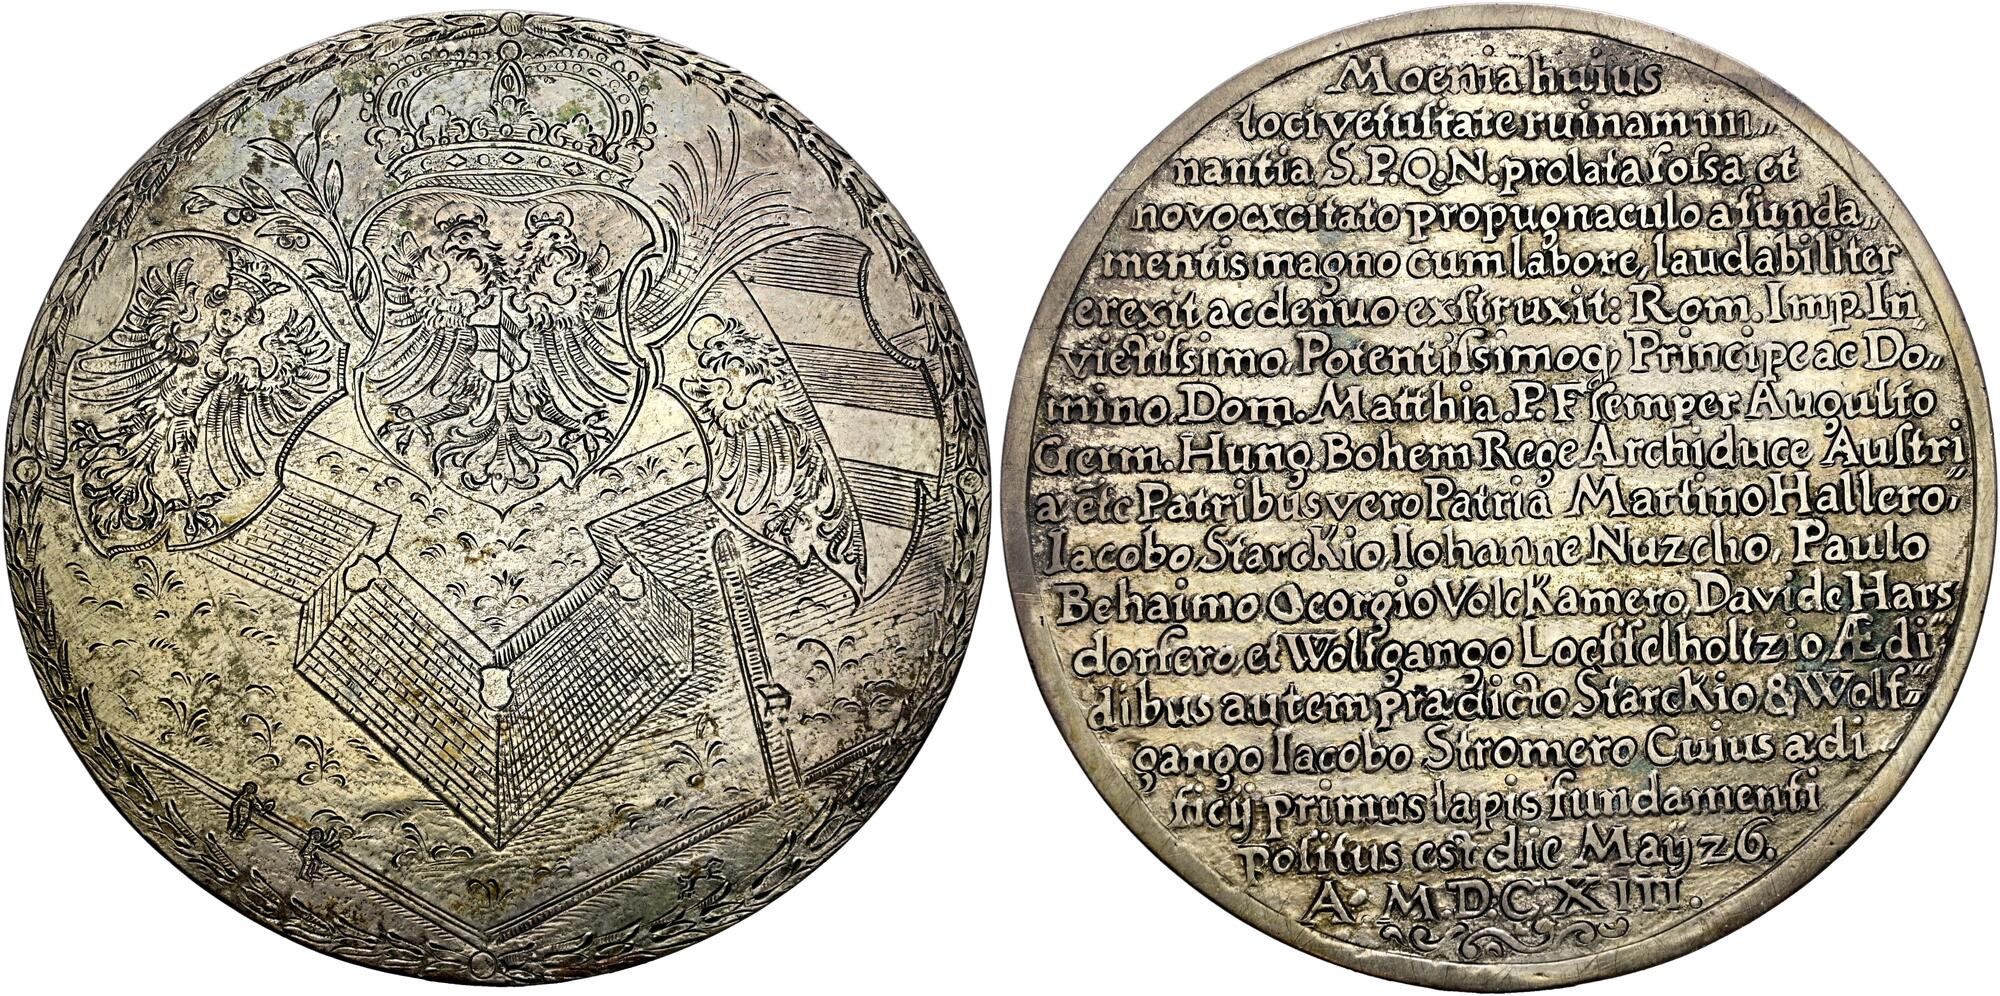 Moenia huius
loci vetustate ruinam mi„
nantia S.P.Q.N. prolata fossa et
novo excitato propugnaculo a funda„
mentis magno cum labore, laudabiliter
erexit ac denuo exſtruxit: Rom. Imp. In„
victiſsimo, Potentiſsimoq, Principe ac Do„
mino, Dom. Matthia. P. F ſemper Auguſto
Germ. Hung. Bohem Rege Archiduce Auſtri„
a etc Patribus vero Patriæ Martino Hallero,
Iacobo Starckio, Iohanne Nuzelio, Paulo
Behaimo, Georgio Volckamero, Davide Hars„
dorfero, et Wolfgango Loeffelholtzio Ædi„
dibus autem prædicto Starckio & Wolf„
gango Iacobo Stromero Cuius ædi„
ficij primus lapis fundamenti
poſitus est die Maÿ 26.
A. M.D.C.XIII.